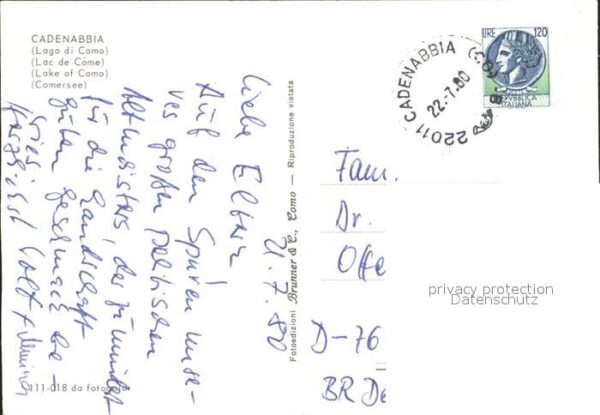 CADENABBIA
(Lago di Como)
(Lac de Côme)
(Lake of Como)
(Comersee)
LIRE 120
REPUBBLICA
ITALIANA
22011 CADENABBIA (CO) B
22.7.80
21.7.80
Liebe Eltern!
Auf den Spuren unse-
res großen politischen
Altmeisters, der zumindest
für die Landschaft
guten Geschmack be-
wies,
herzlichst
Fotoedizioni Brunner & C., Como — Riproduzione vietata
Fam.
Dr.
Offe
D-76
BR De
privacy protection
Datenschutz
111-018 da fotocolor